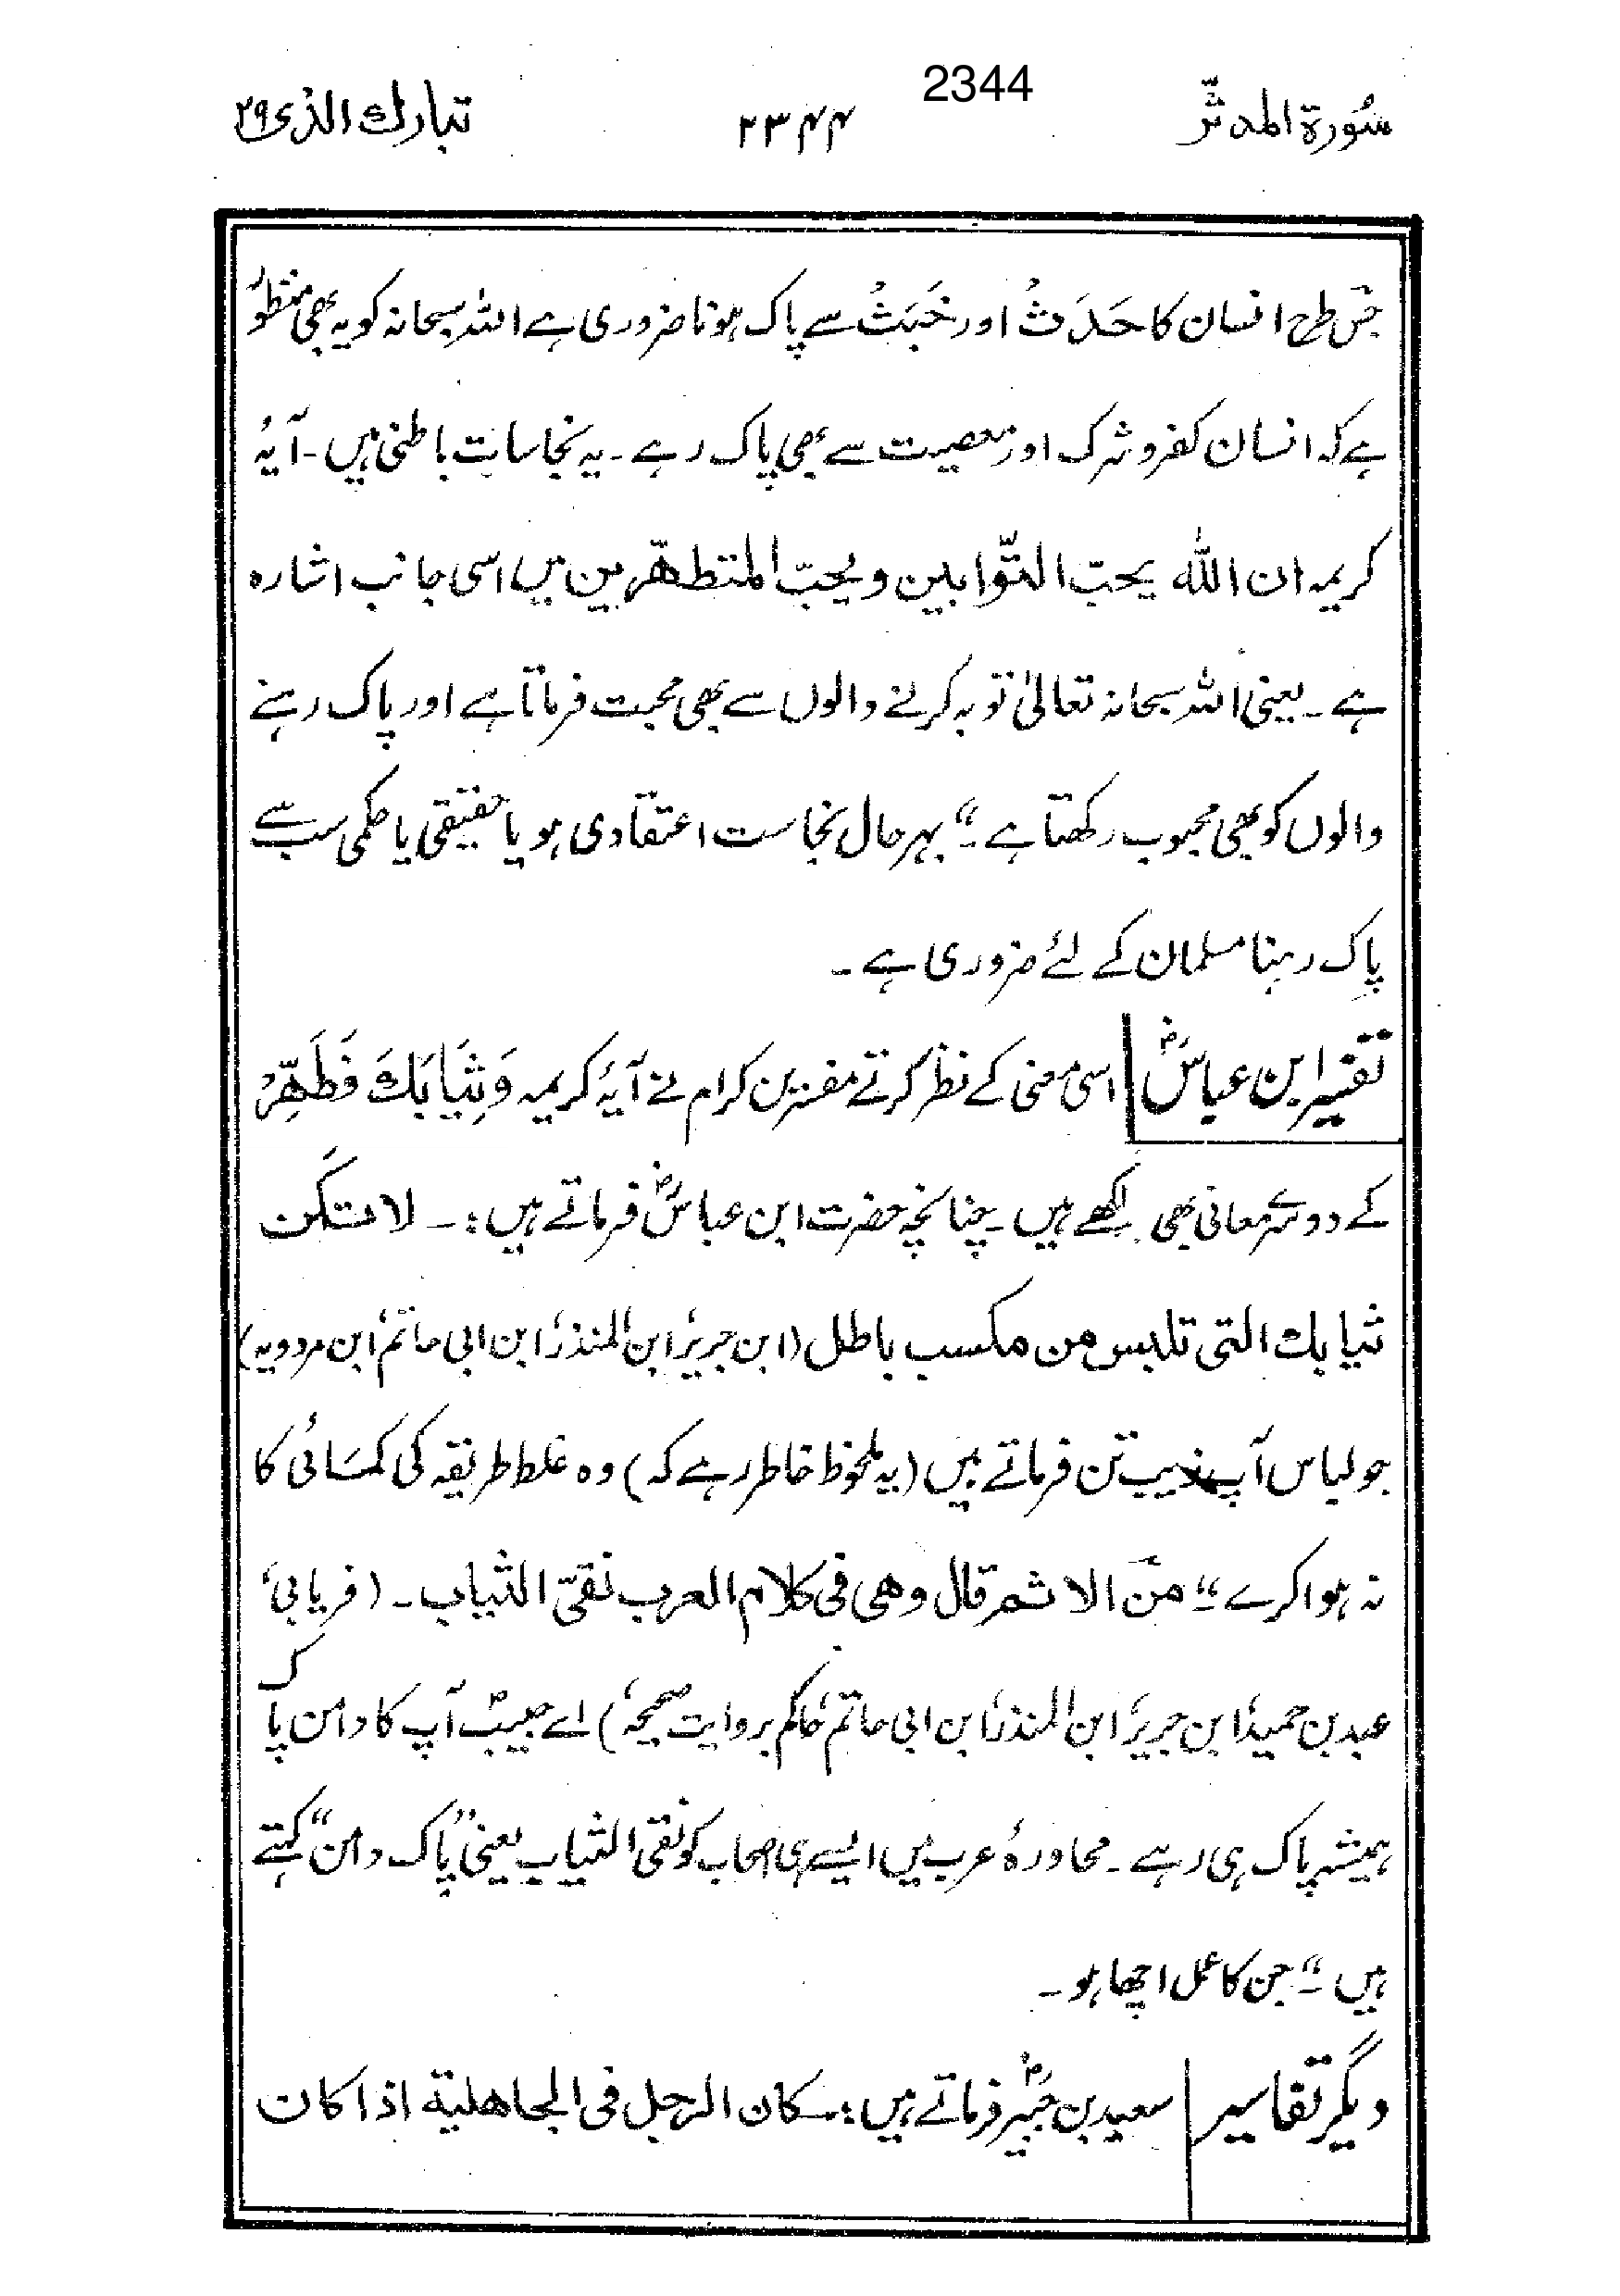 2344
سُورة المدثّر ۲۳۴۴ تبارك الذی ۲۹
جس طرح انسان کا حَدَثْ اور خَبَثْ سے پاک ہونا ضروری ہے اللہ سبحانہ کو یہ بھی منظور
ہے کہ انسان کفر و شرک اور معصیت سے بھی پاک رہے ۔ یہ نجاسات باطنی ہیں ۔ آیہٴ
کریمہ ان اللّٰه یحبّ التّوابین و یحبّ المتطهّرین میں اسی جانب اشارہ
ہے ۔ یعنی اللہ سبحانہ تعالیٰ توبہ کرنے والوں سے بھی محبت فرماتا ہے اور پاک رہنے
والوں کو بھی محبوب رکھتا ہے ۔“ بہر حال نجاست اعتقادی ہو یا حقیقی یا حکمی سب سے
پاک رہنا مسلمان کے لئے ضروری ہے ۔
تفسیر ابن عباسؓ اسی معنی کے نظر کرتے مفسرین کرام نے آیۂ کریمہ وَثِیَابَكَ فَطَهِّرْ
کے دوسرے معانی بھی لکھے ہیں ۔ چنانچہ حضرت ابن عباسؓ فرماتے ہیں :۔ لا تَكن
ثیابك التی تلبس من مکسب باطل (ابن جریر، ابن المنذر، ابن ابی حاتم، ابن مردویہ)
جو لباس آپ زیب تن فرماتے ہیں (یہ ملحوظ خاطر رہے کہ) وہ غلط طریقہ کی کمسائی کا
نہ ہوا کرے ۔“ من الاثم قال وهی فی کلام العرب نقیّ الثیاب ۔ (فریابی،
عبد بن حمید، ابن جریر، ابن المنذر، ابن ابی حاتم، حاکم بروایت صحیحہ،) اے حبیبؐ آپ کا دامن پاک
ہمیشہ پاک ہی رہے ۔ محاورۂ عرب میں ایسے ہی اصحاب کو نقی الثیاب یعنی ”پاک دامن“ کہتے
ہیں ۔“ جن کا عمل اچھا ہو ۔
دیگر تفاسیر سعید بن جبیرؓ فرماتے ہیں :۔ کان الرجل فی الجاهلیة اذا کان